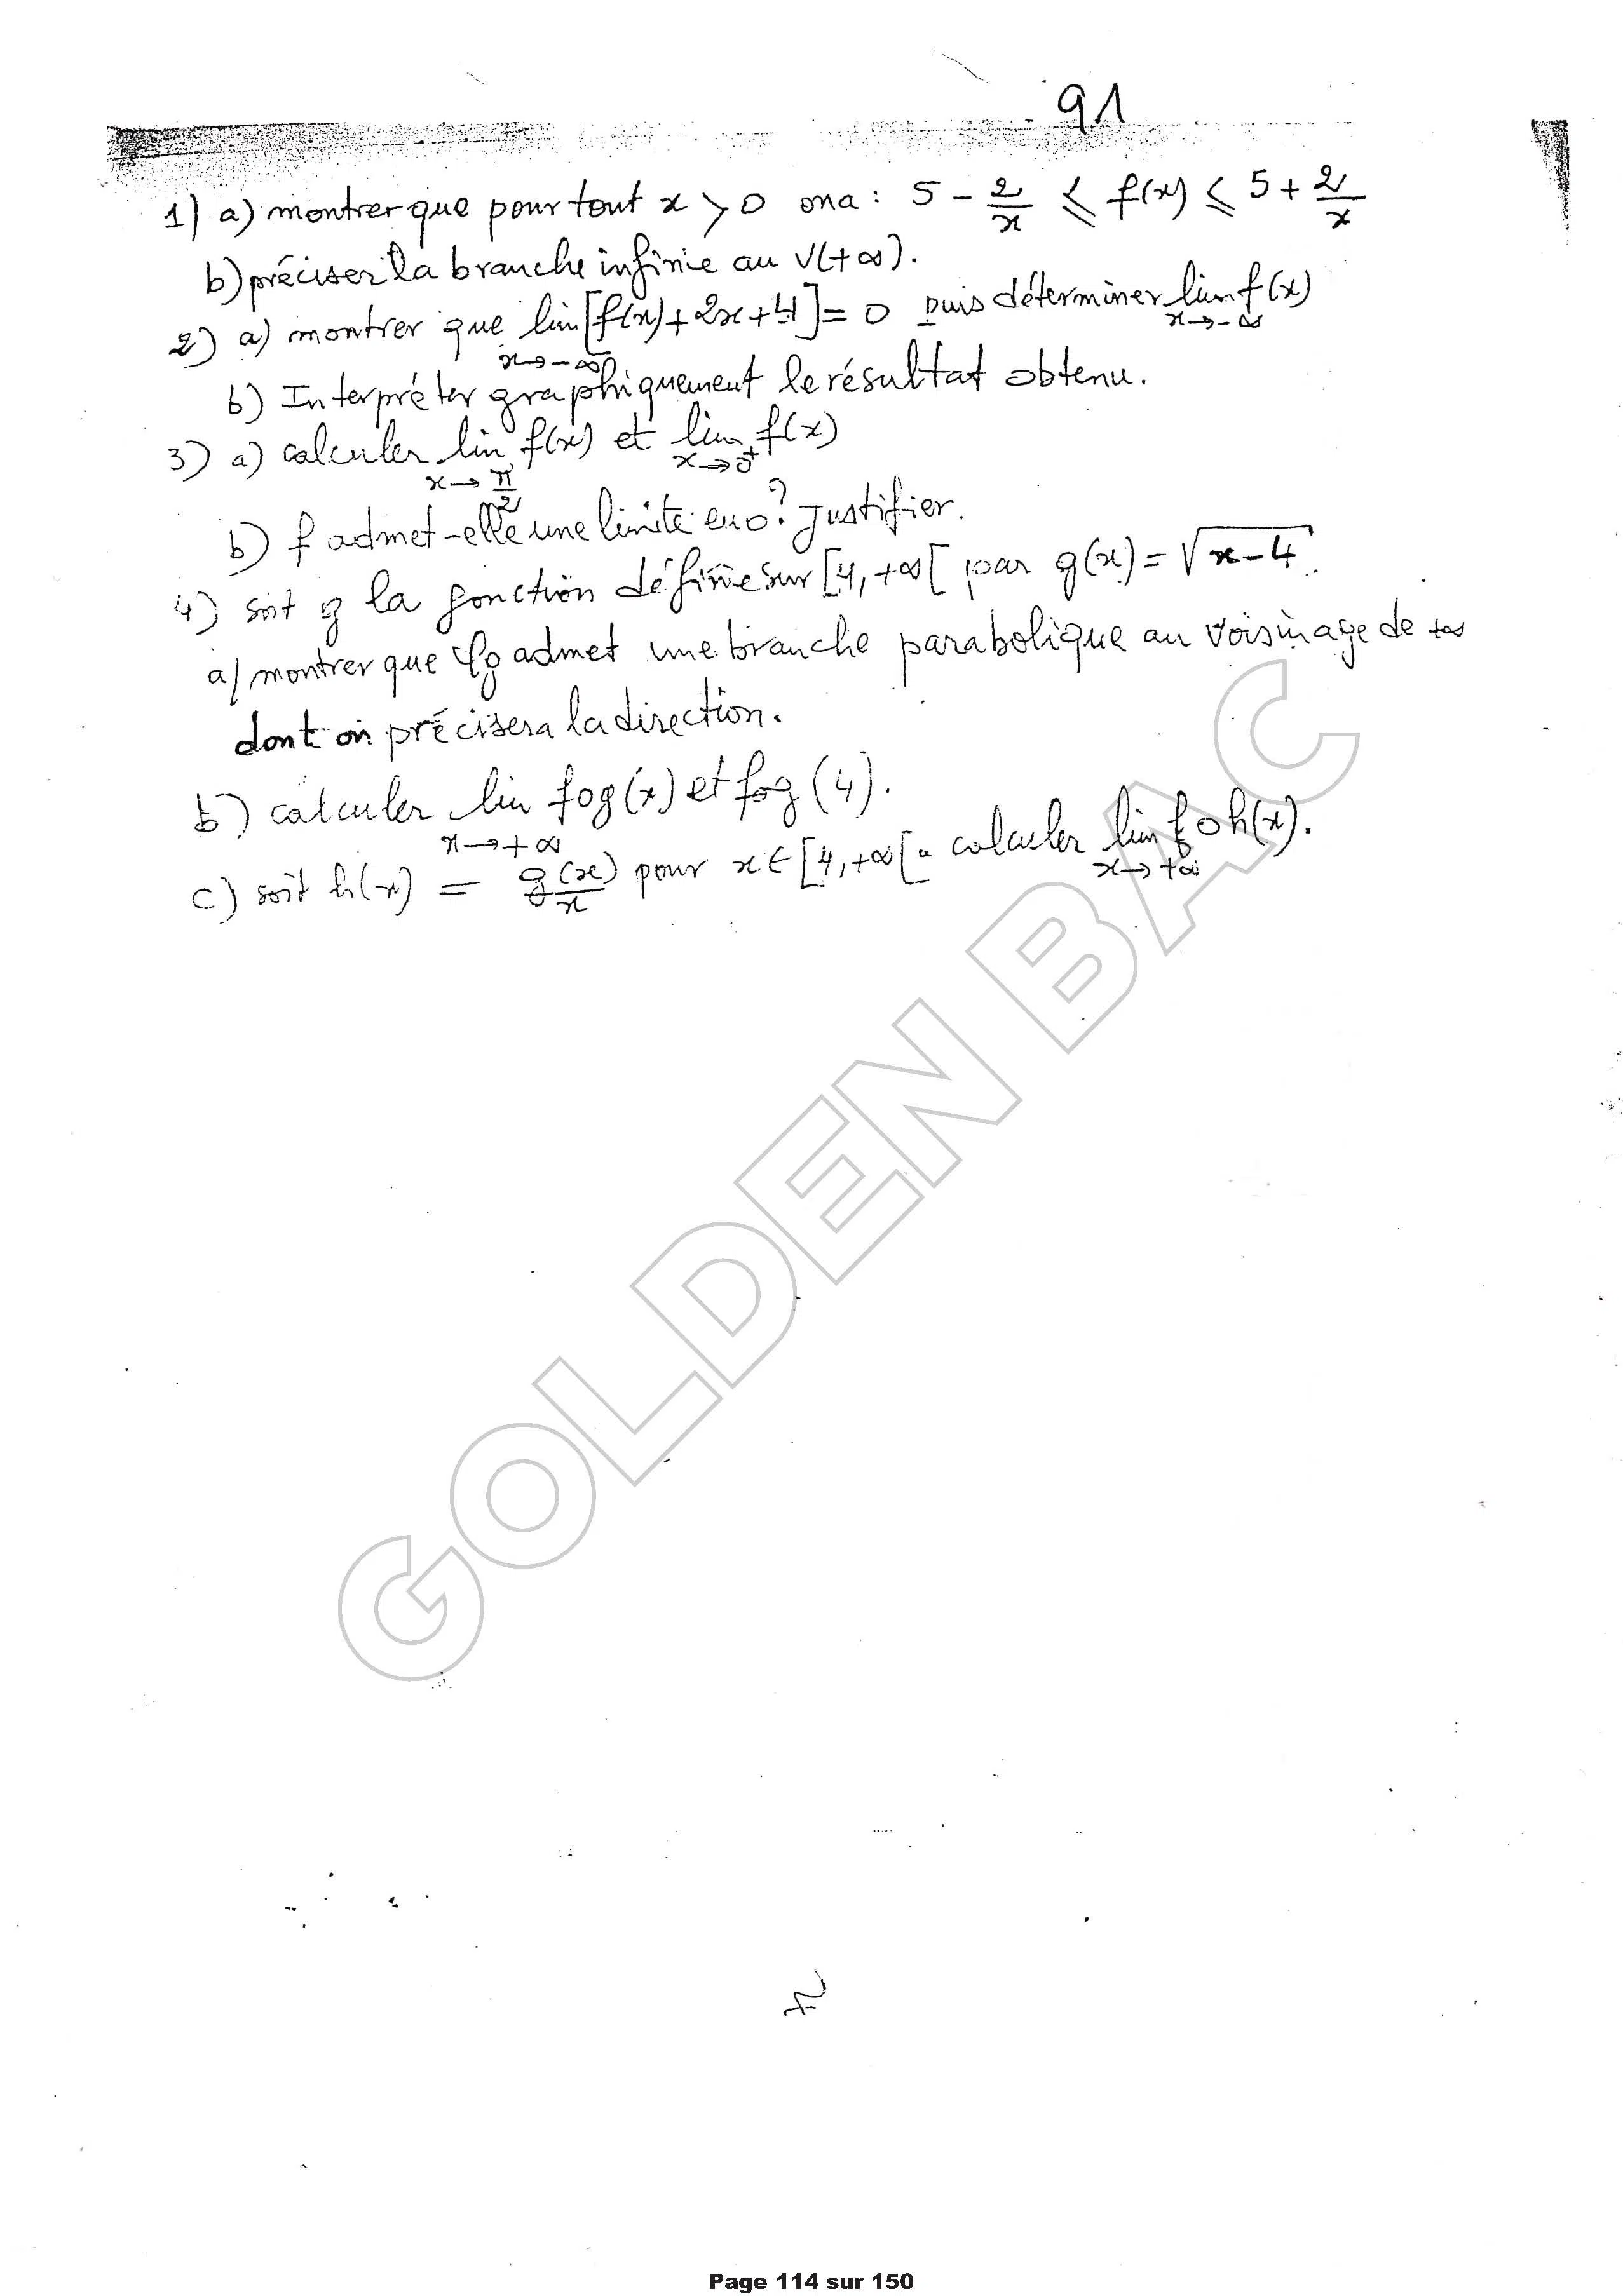 91
1) a) montrer que pour tout x > 0 on a : 5 - 2/x ≤ f(x) ≤ 5 + 2/x
b) préciser la branche infinie au V(+∞).
2) a) montrer que lim x→-∞ [f(x) + 2x + 4] = 0 puis déterminer lim x→-∞ f(x)
b) Interpréter graphiquement le résultat obtenu.
3) a) calculer lim x→π/2 f(x) et lim x→0⁺ f(x)
b) f admet-elle une limite en 0? Justifier.
4) soit g la fonction définie sur [4, +∞[ par g(x) = √(x-4).
a/ montrer que 𝒞g admet une branche parabolique au voisinage de +∞
dont on précisera la direction.
b) calculer lim x→+∞ fog(x) et fog(4).
c) soit h(x) = g(x)/x pour x ∈ [4, +∞[. calculer lim x→+∞ foh(x).
GOLDEN BAC
Page 114 sur 150